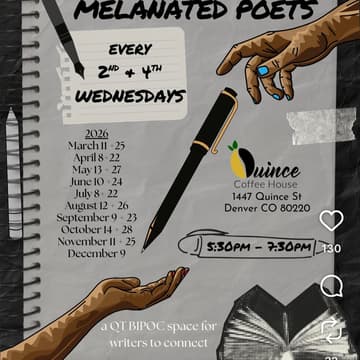 MELANATED POETS
EVERY
2ND + 4TH
WEDNESDAYS
2026
March 11 + 25
April 8 + 22
May 13 + 27
June 10 + 24
July 8 + 22
August 12 + 26
September 9 + 23
October 14 + 28
November 11 + 25
December 9
Quince
Coffee House
1447 Quince St
Denver CO 80220
5:30PM – 7:30PM
130
a QTBIPOC space for
writers to connect